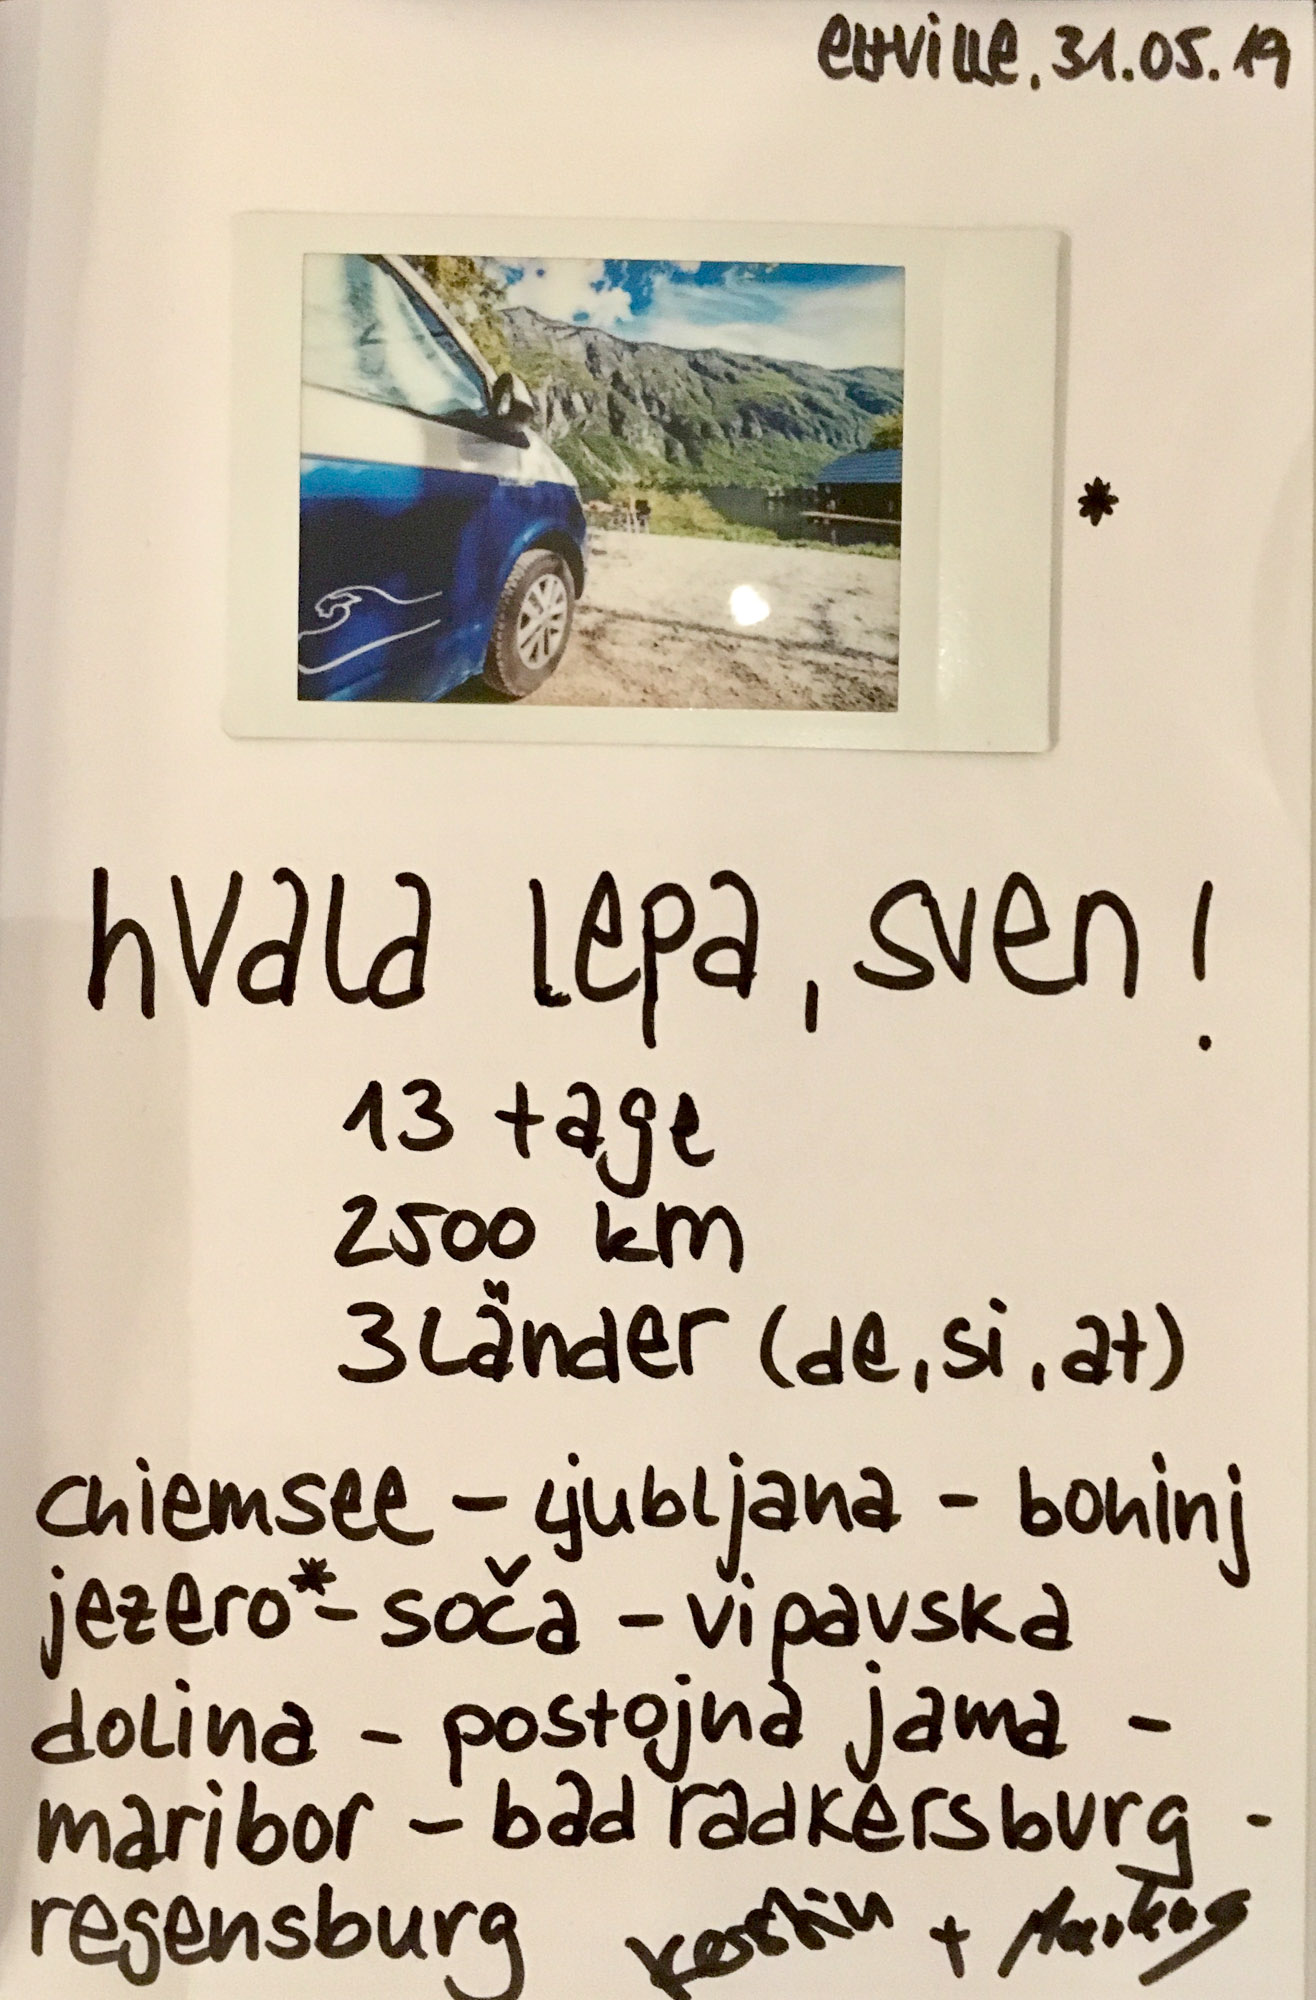 eltville, 31.05.19
*
hvala lepa, sven!
13 tage
2500 km
3 Länder (de, si, at)
chiemsee – ljubljana – bohinj
jezero* – soča – vipavska
dolina – postojna jama –
maribor – bad radkersburg –
regensburg kerstin + Markus